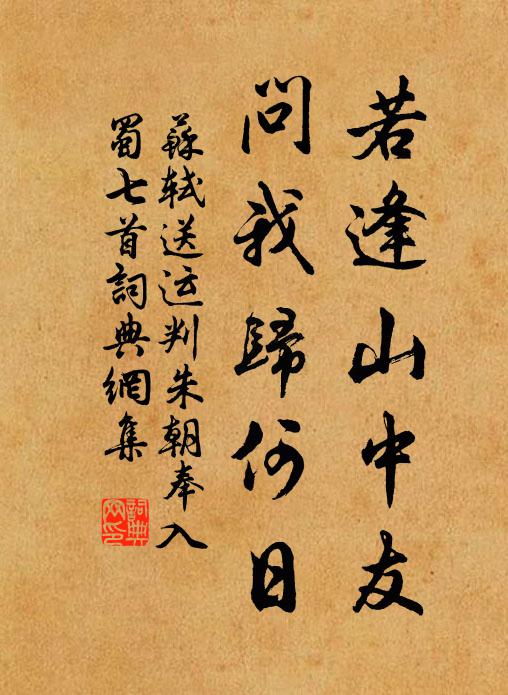 若逢山中友
問我歸何日
蘇軾送运判朱朝奉入
蜀七首詞典網集
詞典
网印